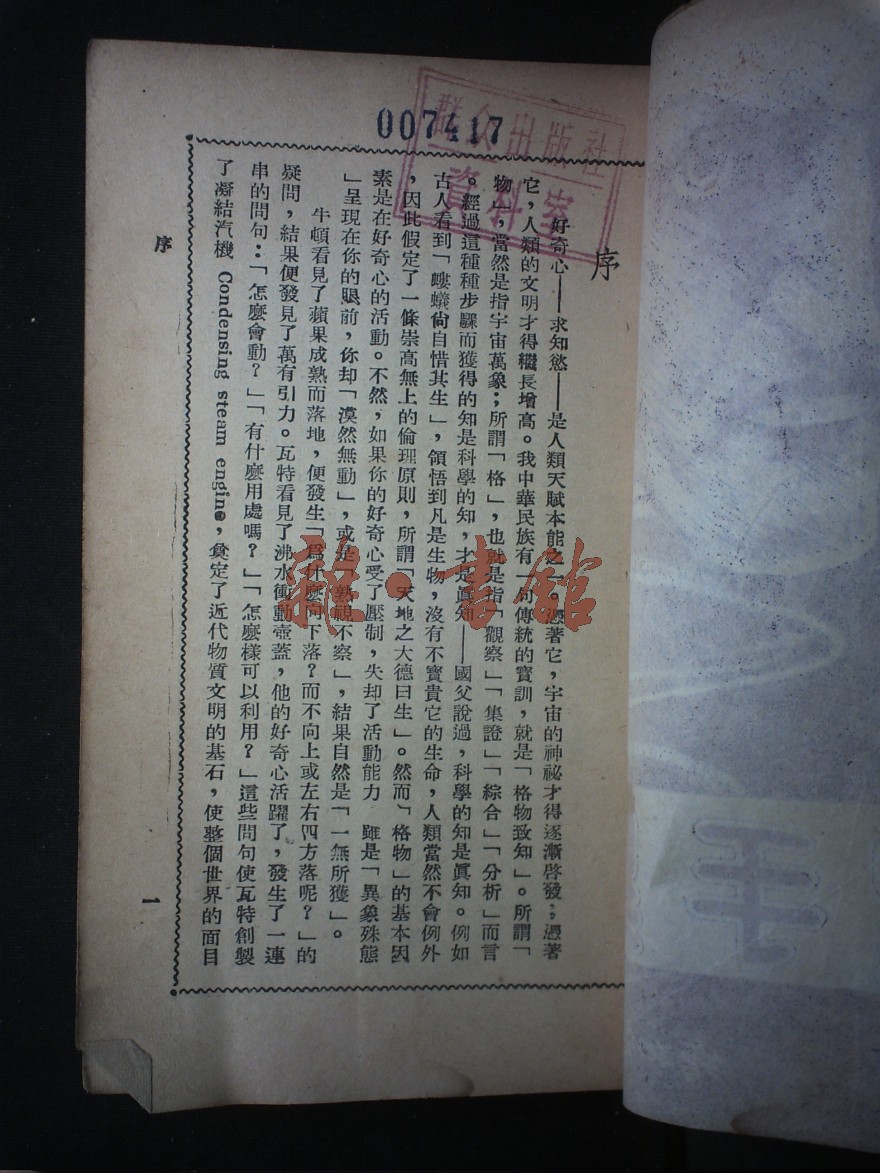 007417
群众出版社
資料室
序
好奇心——求知慾——是人類天賦本能之一。憑著它，宇宙的神祕才得逐漸啓發；憑著
它，人類的文明才得穖長增高。我中華民族有一句傳統的寶訓，就是「格物致知」。所謂「
物」，當然是指宇宙萬象；所謂「格」，也就是指「觀察」「集證」「綜合」「分析」而言
。經過這種種步驟而獲得的知是科學的知，才是眞知——國父說過，科學的知是眞知。例如
古人看到「螻蟻尙自惜其生」，領悟到凡是生物，沒有不寶貴它的生命，人類當然不會例外
，因此假定了一條崇高無上的倫理原則，所謂「天地之大德曰生」。然而「格物」的基本因
素是在好奇心的活動。不然，如果你的好奇心受了壓制，失却了活動能力　雖是「異象殊態
」呈現在你的眼前，你却「漠然無動」，或是「熟視不察」，結果自然是「一無所獲」。
牛頓看見了蘋果成熟而落地，便發生「爲什麼向下落？而不向上或左右四方落呢？」的
疑問，結果便發見了萬有引力。瓦特看見了沸水衝動壺蓋，他的好奇心活躍了，發生了一連
串的問句：「怎麼會動？」「有什麼用處嗎？」「怎麼樣可以利用？」這些問句使瓦特創製
了凝結汽機 Condensing steam engine，奠定了近代物質文明的基石，使整個世界的面目
序
一
雜·書館